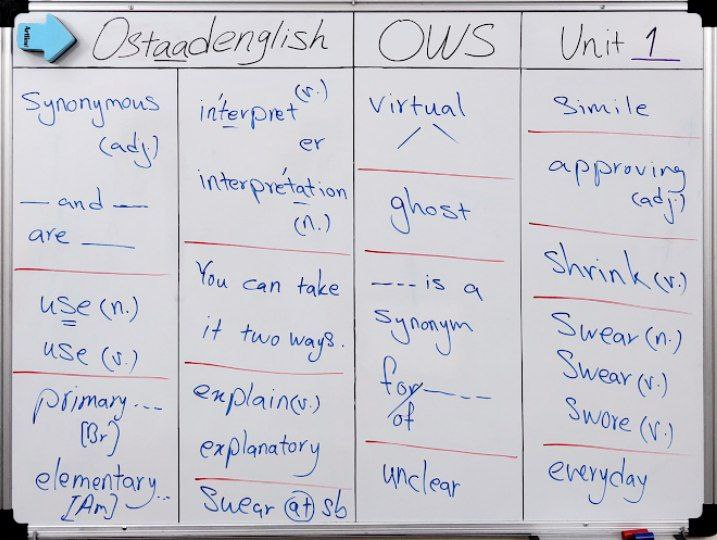 Ostaadenglish
OWS
Unit 1
Synonymous
(adj.)
— and —
are —
use (n.)
use (v.)
primary ...
[Br]
elementary...
[Am]
interpret (v.)
er
interpretation
(n.)
You can take
it two ways.
explain (v.)
explanatory
Swear at sb
virtual
ghost
--- is a
synonym
for ----
of
unclear
Simile
approving
(adj.)
shrink (v.)
Swear (n.)
Swear (v.)
Swore (v.)
everyday